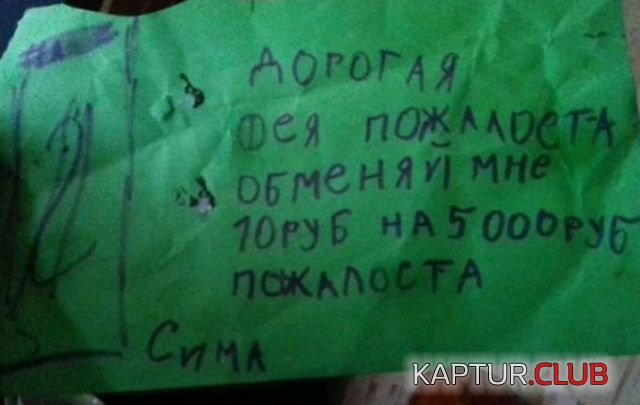 ДОРОГАЯ
ФЕЯ ПОЖАЛОСТА
ОБМЕНЯЙ МНЕ
10РУБ НА 5000РУБ
ПОЖАЛОСТА
СИМА
KAPTUR.CLUB